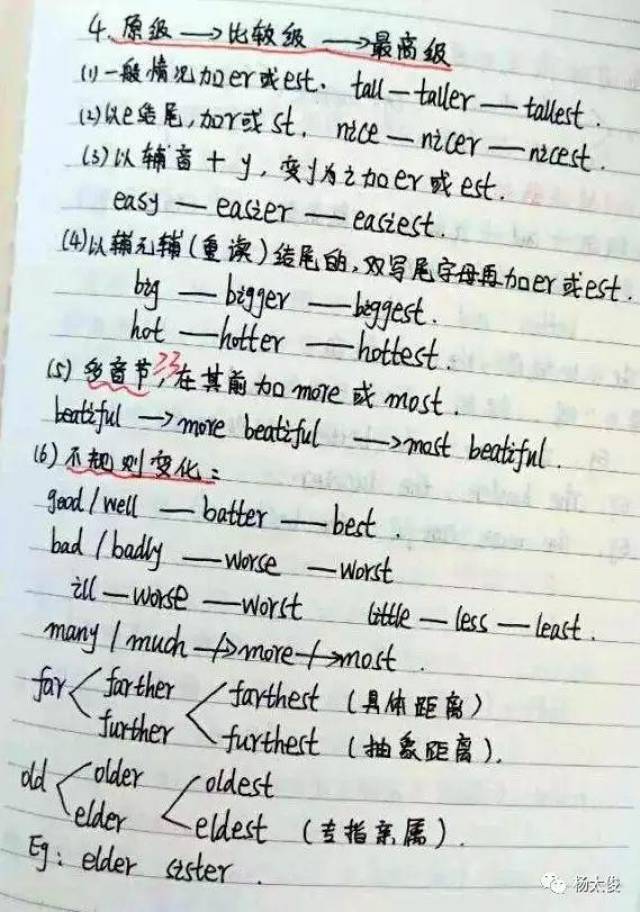 4. 原级 → 比较级 → 最高级
(1) 一般情况加er或est. tall — taller — tallest.
(2) 以e结尾,加r或st. nice — nicer — nicest.
(3) 以辅音 + y, 变y为i加er或est.
easy — easier — easiest.
(4) 以辅元辅(重读)结尾的,双写尾字母再加er或est.
big — bigger — biggest.
hot — hotter — hottest.
(5) 多音节≥3, 在其前加more或most.
beatiful → more beatiful → most beatiful.
(6) 不规则变化:
good / well — batter — best.
bad / badly — worse — worst
ill — worse — worst little — less — least.
many / much → more → most.
far farther farthest (具体距离)
further furthest (抽象距离).
old older oldest
elder eldest (专指亲属).
Eg: elder sister.
杨太俊